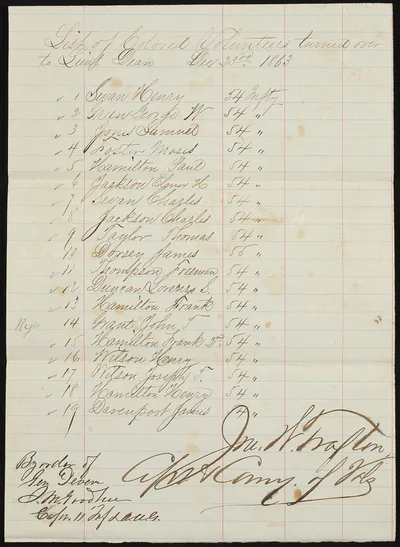 List of Colored Volunteers turned over
to Lieut Dean Dec 23rd 1863
1 Swan Henry 54 Infty
2 Green George W 54 "
3 Jones Samuel 54 "
4 Foster Moses 54 "
5 Hamilton Paul 54 "
6 Jackson H 54 "
7 Charles 54 "
8 Jackson Charles 54 "
9 Taylor Thomas 54 "
10 Dorsey James "
11 Thompson Freeman 54 "
12 Duncan Lorenzo S. 54 "
13 Hamilton Frank 54 "
14 Grant John T 54 "
15 Hamilton Frank 2nd 54 "
16 Wilson Henry 54 "
17 Wilson Joseph T. 54 "
18 Hamilton Henry 54 "
19 Davenport James "
Jno. W. Trafton
Comy. of
By order of
Gen Devens
Capt 11" Inf